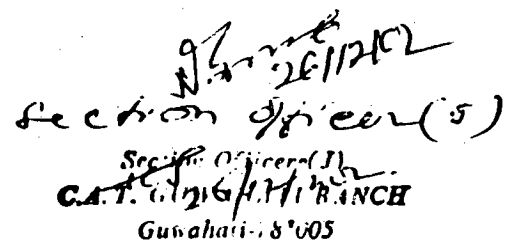 26/12/02
Section Officer (J)
Section Officer (J)
C.A.T. GUWAHATI BRANCH
Guwahati-781005